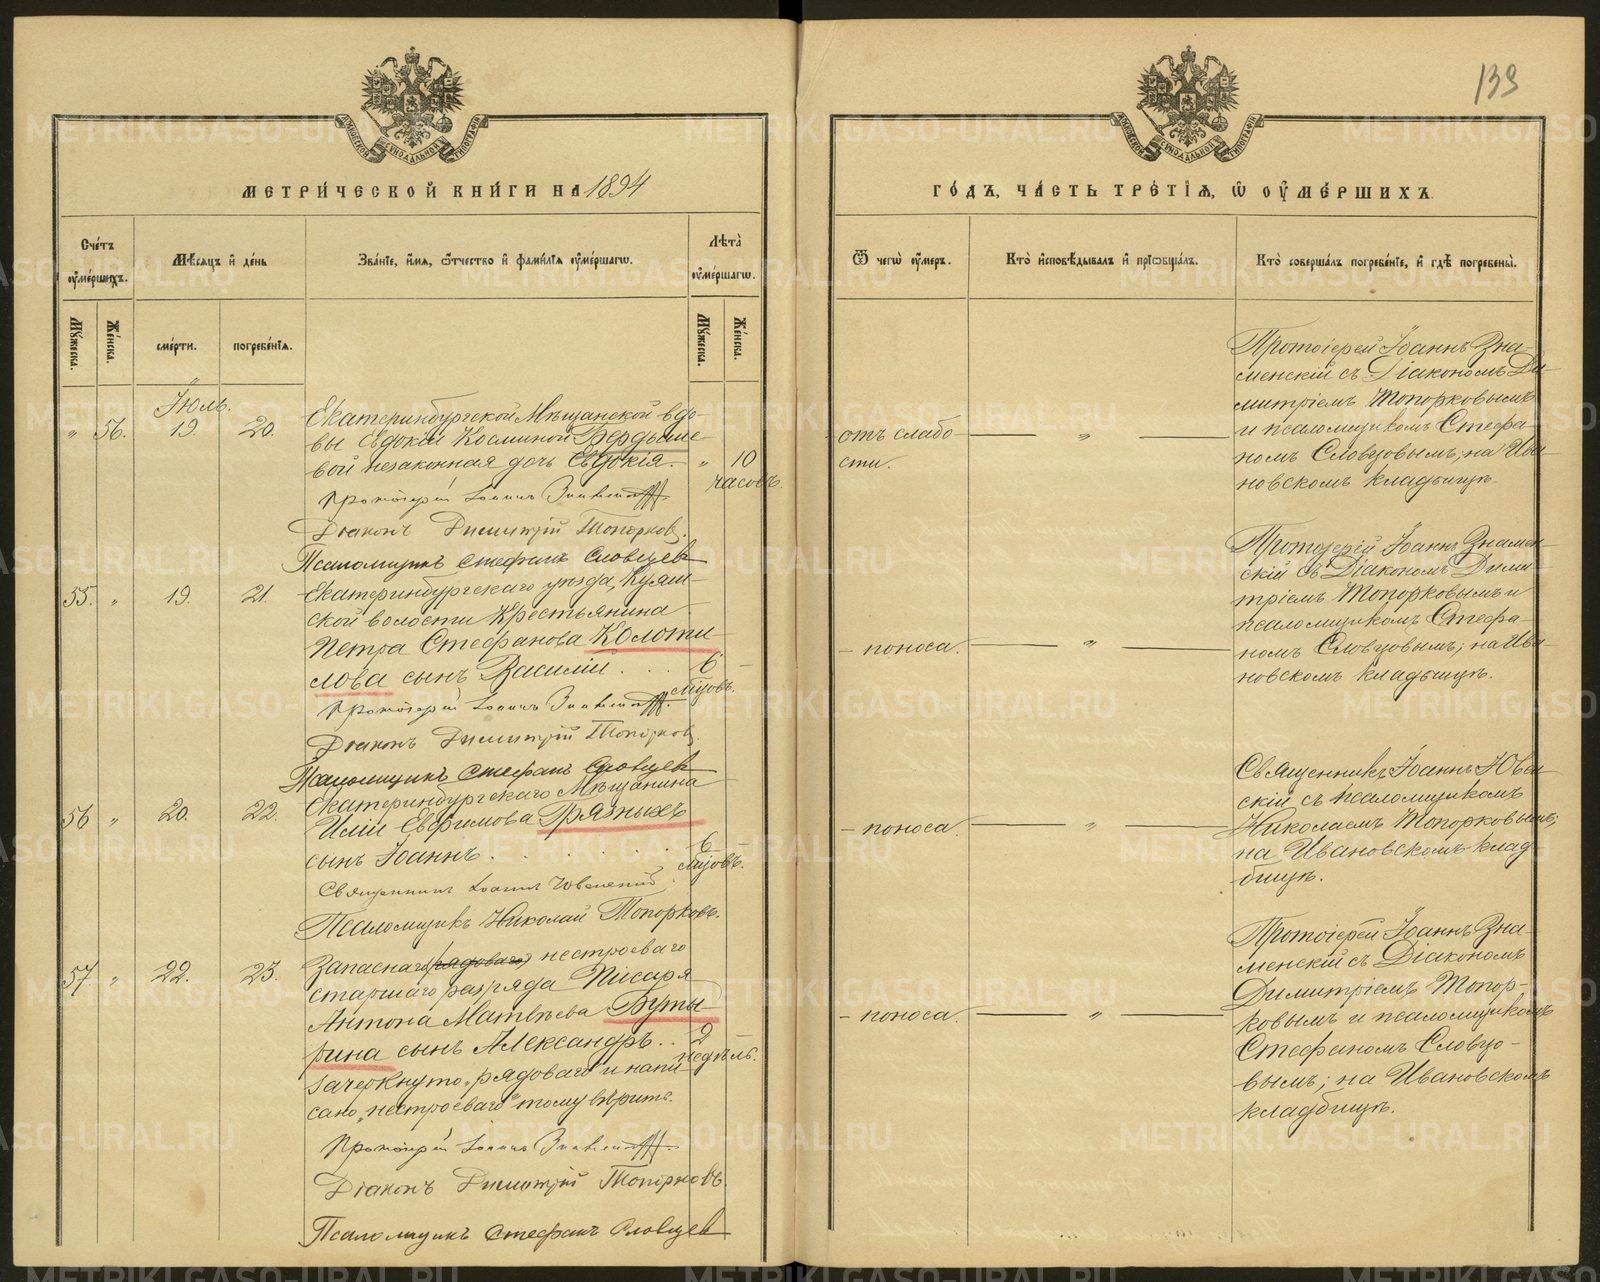 139
МЕТРИ́ЧЕСКОЙ КНИ́ГИ НА 1894
ГО́ДЪ, ЧА́СТЬ ТРЕ́ТІѦ, Ѡ҆ ОУ҆МЕ́РШИХЪ.
Счéтъ оу҆ме́ршихъ.
Мѣ́сяцъ и҆ де́нь
Зва́нїе, и҆́мѧ, ѻ҆́тчество и҆ фами́лїѧ оу҆ме́ршагѡ.
Лѣта̀ оу҆ме́ршагѡ.
Ѿ чегѡ̀ оу҆́меръ.
Кто̀ и҆сповѣ́дывалъ и҆ прїѡбща́лъ.
Кто̀ соверша́лъ погребе́нїе, и҆ гдѣ̀ погребены̀.
Му́жеска.
Же́нска.
сме́рти.
погребе́нїѧ.
Му́жеска.
Же́нска.
Іюль.
" 56. 19. 20.
Екатеринбургской Мѣщанской вдо-
вы Евдокіи Косминой Бердыше-
вой незаконная дочь Евдокія. " 10
часовъ.
Протоіерей Іоаннъ Знаменскій
Діаконъ Димитрій Топорковъ.
Псаломщикъ Стефанъ Словцевъ
отъ слабо-
сти.
"
Протоіерей Іоаннъ Зна-
менскій съ Діакономъ Ди-
митріемъ Топорковымъ
и псаломщикомъ Стефа-
номъ Словцовымъ; на Ива-
новскомъ кладбищѣ.
55. " 19. 21.
Екатеринбургскаго уѣзда, Куяш-
ской волости Крестьянина
Петра Стефанова Колоти-
лова сынъ Василій . . . 6 -
мѣцовъ.
Протоіерей Іоаннъ Знаменскій
Діаконъ Димитрій Топорковъ
Псаломщикъ Стефанъ Словцевъ
- поноса.
"
Протоіерей Іоаннъ Знамен-
скій съ Діакономъ Дими-
тріемъ Топорковымъ и
псаломщикомъ Стефа-
номъ Словцовымъ; на Ива-
новскомъ кладбищѣ.
56 " 20. 22.
Екатеринбургскаго Мѣщанина
Иліи Евфимова Грязныхъ
сынъ Іоаннъ . . . . . . . 6
мѣцовъ.
Священникъ Іоаннъ Ювенскій
Псаломщикъ Николай Топорковъ.
- поноса.
"
Священникъ Іоаннъ Ювен-
скій съ псаломщикомъ
Николаемъ Топорковымъ;
на Ивановскомъ клад-
бищѣ.
57. " 22. 23.
Запаснаго (рядоваго) нестроеваго
старшаго разряда Писаря
Антона Матвѣева Буты-
рина сынъ Александръ . . 2
недѣль.
Зачеркнуто „рядоваго и напи-
сано „нестроеваго" тому вѣрить.
Протоіерей Іоаннъ Знаменскій
Діаконъ Димитрій Топорковъ.
Псаломщикъ Стефанъ Словцевъ
- поноса.
"
Протоіерей Іоаннъ Зна-
менскій съ Діакономъ
Димитріемъ Топор-
ковымъ и псаломщикомъ
Стефаномъ Словцо-
вымъ; на Ивановскомъ
кладбищѣ.
METRIKI.GASO-URAL.RU